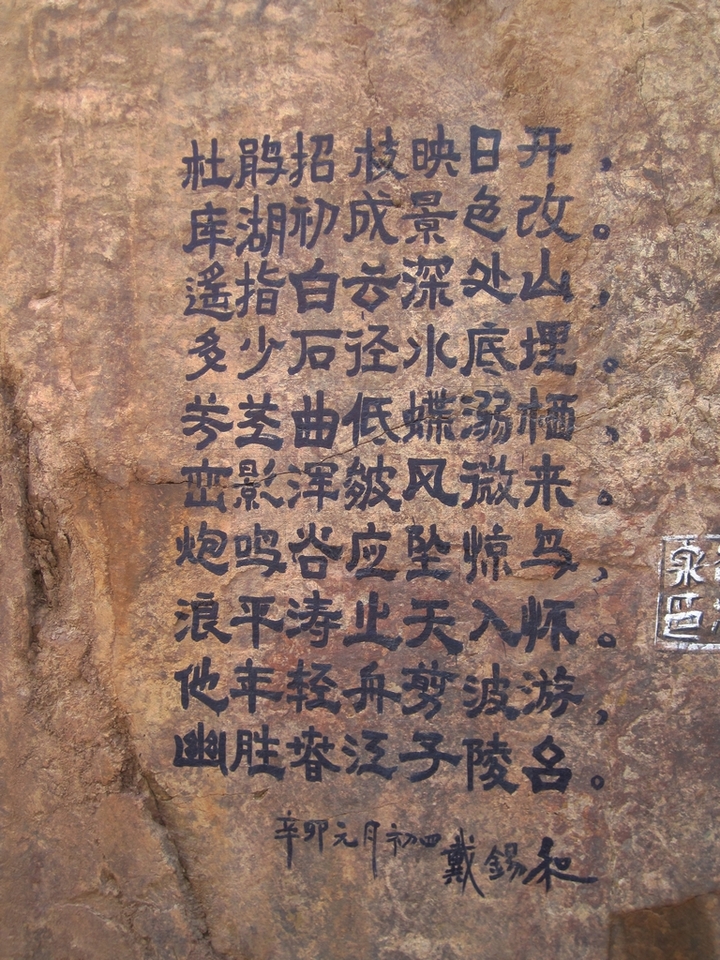 杜鹃招枝映日开，
库湖初成景色改。
遥指白云深处山，
多少石径水底埋。
茎曲低蝶溺栖，
峦影浑皱风微来。
炮鸣谷应坠惊鸟，
浪平涛止天入怀。
他年轻舟剪波游，
幽胜江子陵名。
辛卯元月初四 戴锡和